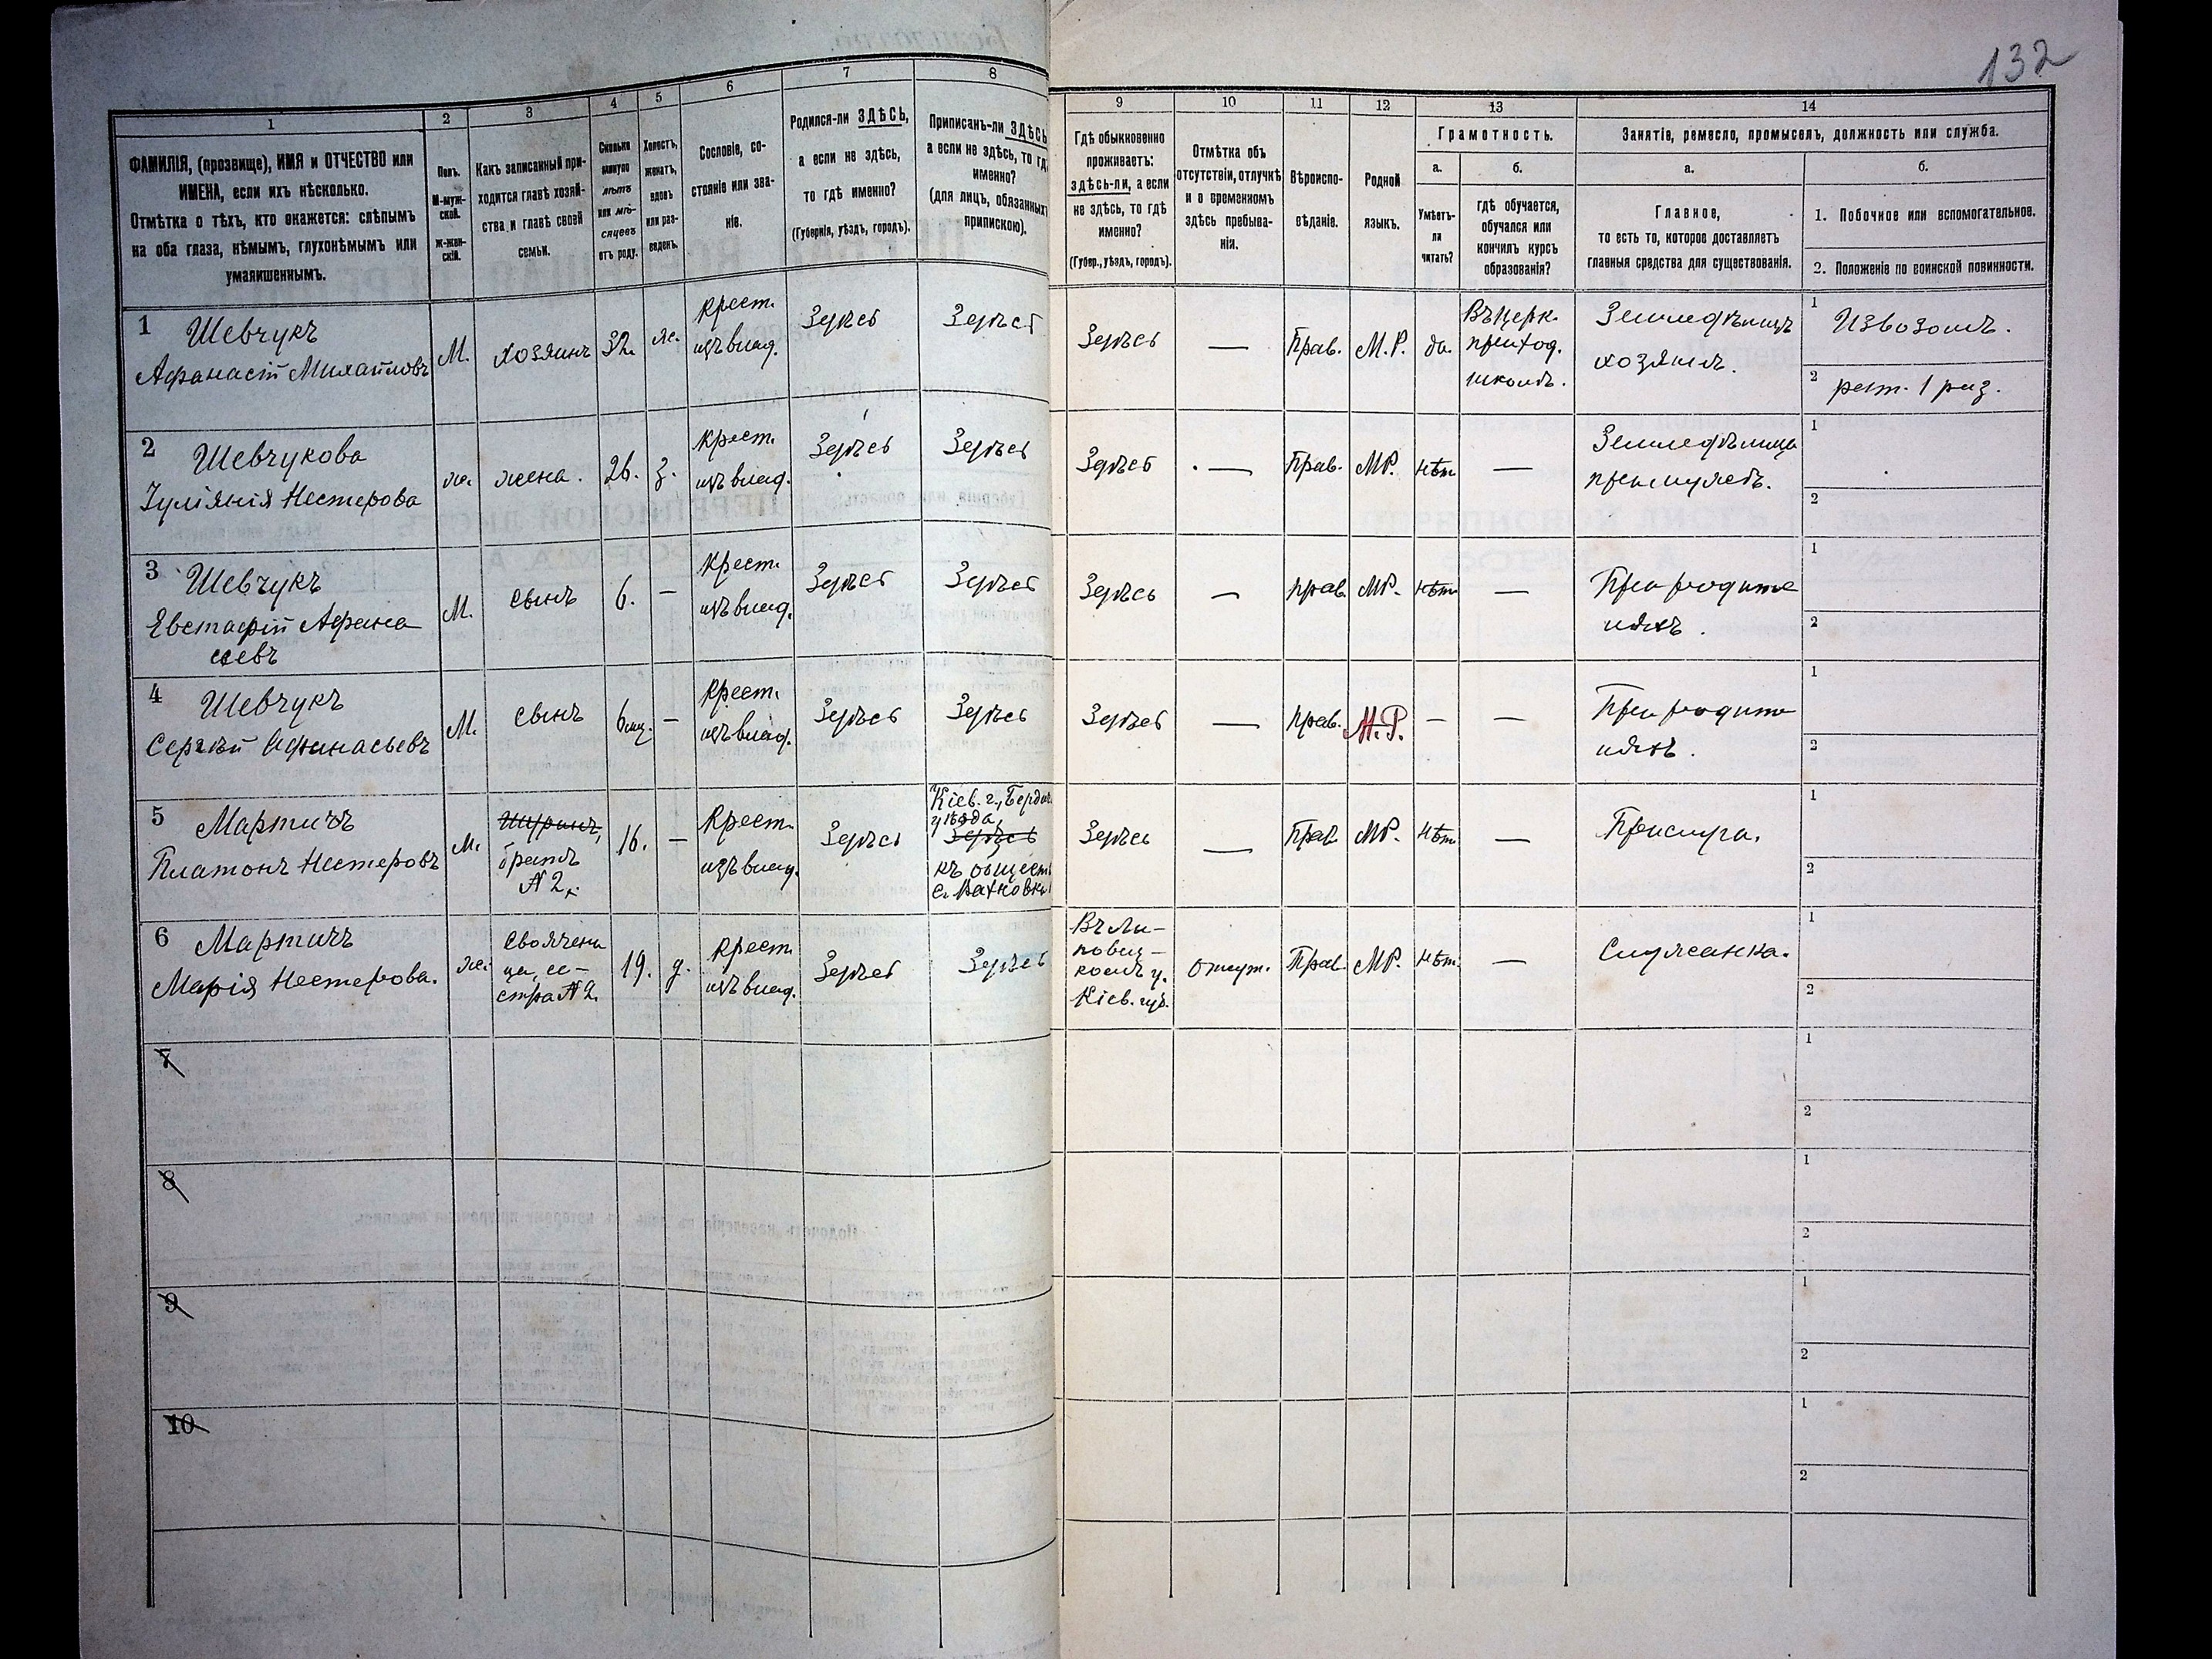 132
1
2
3
4
5
6
7
8
9
10
11
12
13
14
ФАМИЛІЯ, (прозвище), ИМЯ и ОТЧЕСТВО или
ИМЕНА, если ихъ нѣсколько.
Отмѣтка о тѣхъ, кто окажется: слѣпымъ
на оба глаза, нѣмымъ, глухонѣмымъ или
умалишеннымъ.
Полъ.
М-муж-
ской.
Ж-жен-
скій.
Какъ записанный при-
ходится главѣ хозяй-
ства и главѣ своей
семьи.
Сколько
минуло
лѣтъ
или мѣ-
сяцевъ
отъ роду.
Холостъ,
женатъ,
вдовъ
или раз-
веденъ.
Сословіе, со-
стояніе или зва-
ніе.
Родился-ли ЗДѢСЬ,
а если не здѣсь,
то гдѣ именно?
(Губернія, уѣздъ, городъ).
Приписанъ-ли ЗДѢСЬ
а если не здѣсь, то гдѣ
именно?
(для лицъ, обязанныхъ
припискою).
Гдѣ обыкновенно
проживаетъ:
здѣсь-ли, а если
не здѣсь, то гдѣ
именно?
(Губер., уѣздъ, городъ).
Отмѣтка объ
отсутствіи, отлучкѣ
и о временномъ
здѣсь пребыва-
ніи.
Вѣроиспо-
вѣданіе.
Родной
языкъ.
Грамотность.
а.
Умѣетъ-
ли
читать?
б.
гдѣ обучается,
обучался или
кончилъ курсъ
образованія?
Занятіе, ремесло, промыселъ, должность или служба.
а.
Главное,
то есть то, которое доставляетъ
главныя средства для существованія.
б.
1. Побочное или вспомогательное.
2. Положеніе по воинской повинности.
1 Шевчукъ
Афанасій Михайловъ
М.
хозяинъ
32.
ж.
крест.
изъ влад.
Здѣсь
Здѣсь
Здѣсь
—
Прав.
М.Р.
да.
Въ церк.
приход.
школѣ.
Земледѣлецъ
хозяинъ.
1 Извозомъ.
2 рат. 1 раз.
2 Шевчукова
Іуліянія Нестерова
ж.
жена.
26.
з.
крест.
изъ влад.
Здѣсь
Здѣсь
Здѣсь
—
Прав.
МР.
нѣт
—
Земледѣлица
при мужѣ.
1
2
3 Шевчукъ
Евстафій Афана
сіевъ
М.
сынъ
6.
—
крест.
изъ влад.
Здѣсь
Здѣсь
Здѣсь
—
прав.
МР.
нѣт
—
При родите
ляхъ.
1
2
4 Шевчукъ
Сергѣй Афанасьевъ
М.
сынъ
6 мц.
—
крест.
изъ влад.
Здѣсь
Здѣсь
Здѣсь
—
прав.
М.Р.
—
—
При родите
ляхъ.
1
2
5 Мартичъ
Платонъ Нестеровъ
М.
Шуринъ,
братъ
№ 2.
16.
—
крест.
изъ влад.
Здѣсь
Кіев. г., Бердич.
уѣзда
Здѣсь
къ общест
Здѣсь
—
Прав.
МР.
нѣт
—
Прислуга.
1
2
6 Мартичъ
Марія Нестерова.
ж.
свояченi
ца, се-
стра № 2.
19.
д.
крест.
изъ влад.
Здѣсь
Здѣсь
Въ Ли-
повец-
комъ у.
Кіев. губ.
отсут.
Прав.
МР.
нѣт.
—
Служанка.
1
2
7
1
2
8
1
2
9
1
2
10
1
2